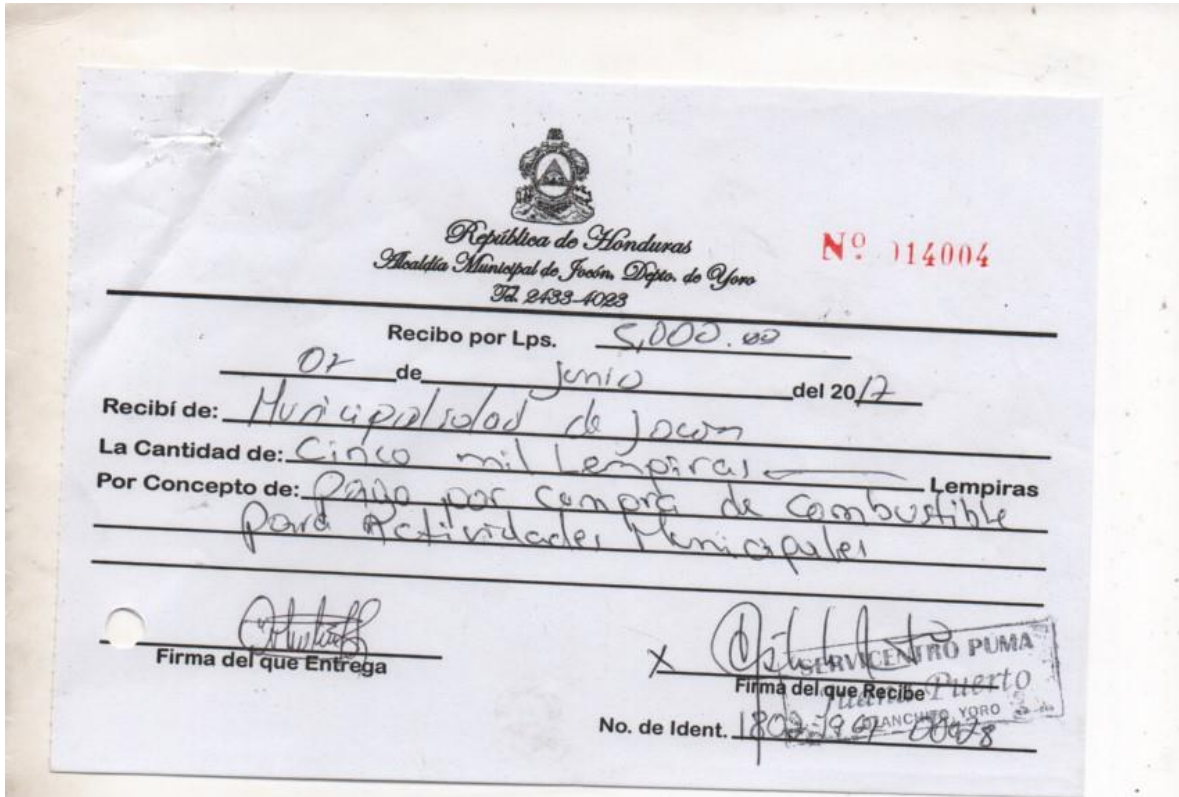 República de Honduras
Alcaldía Municipal de Jocón, Depto. de Yoro
Tel. 2433-4023
Nº 014004
Recibo por Lps. 5,000.00
02 de junio del 2017
Recibí de: Municipalidad de Jocon
La Cantidad de: Cinco mil Lempiras Lempiras
Por Concepto de: Pago por compra de combustible
para Actividades Municipales
Firma del que Entrega
SERVICENTRO PUMA
Firma del que Recibe
Puerto
OLANCHITO, YORO
No. de Ident. 1807-1967-00978